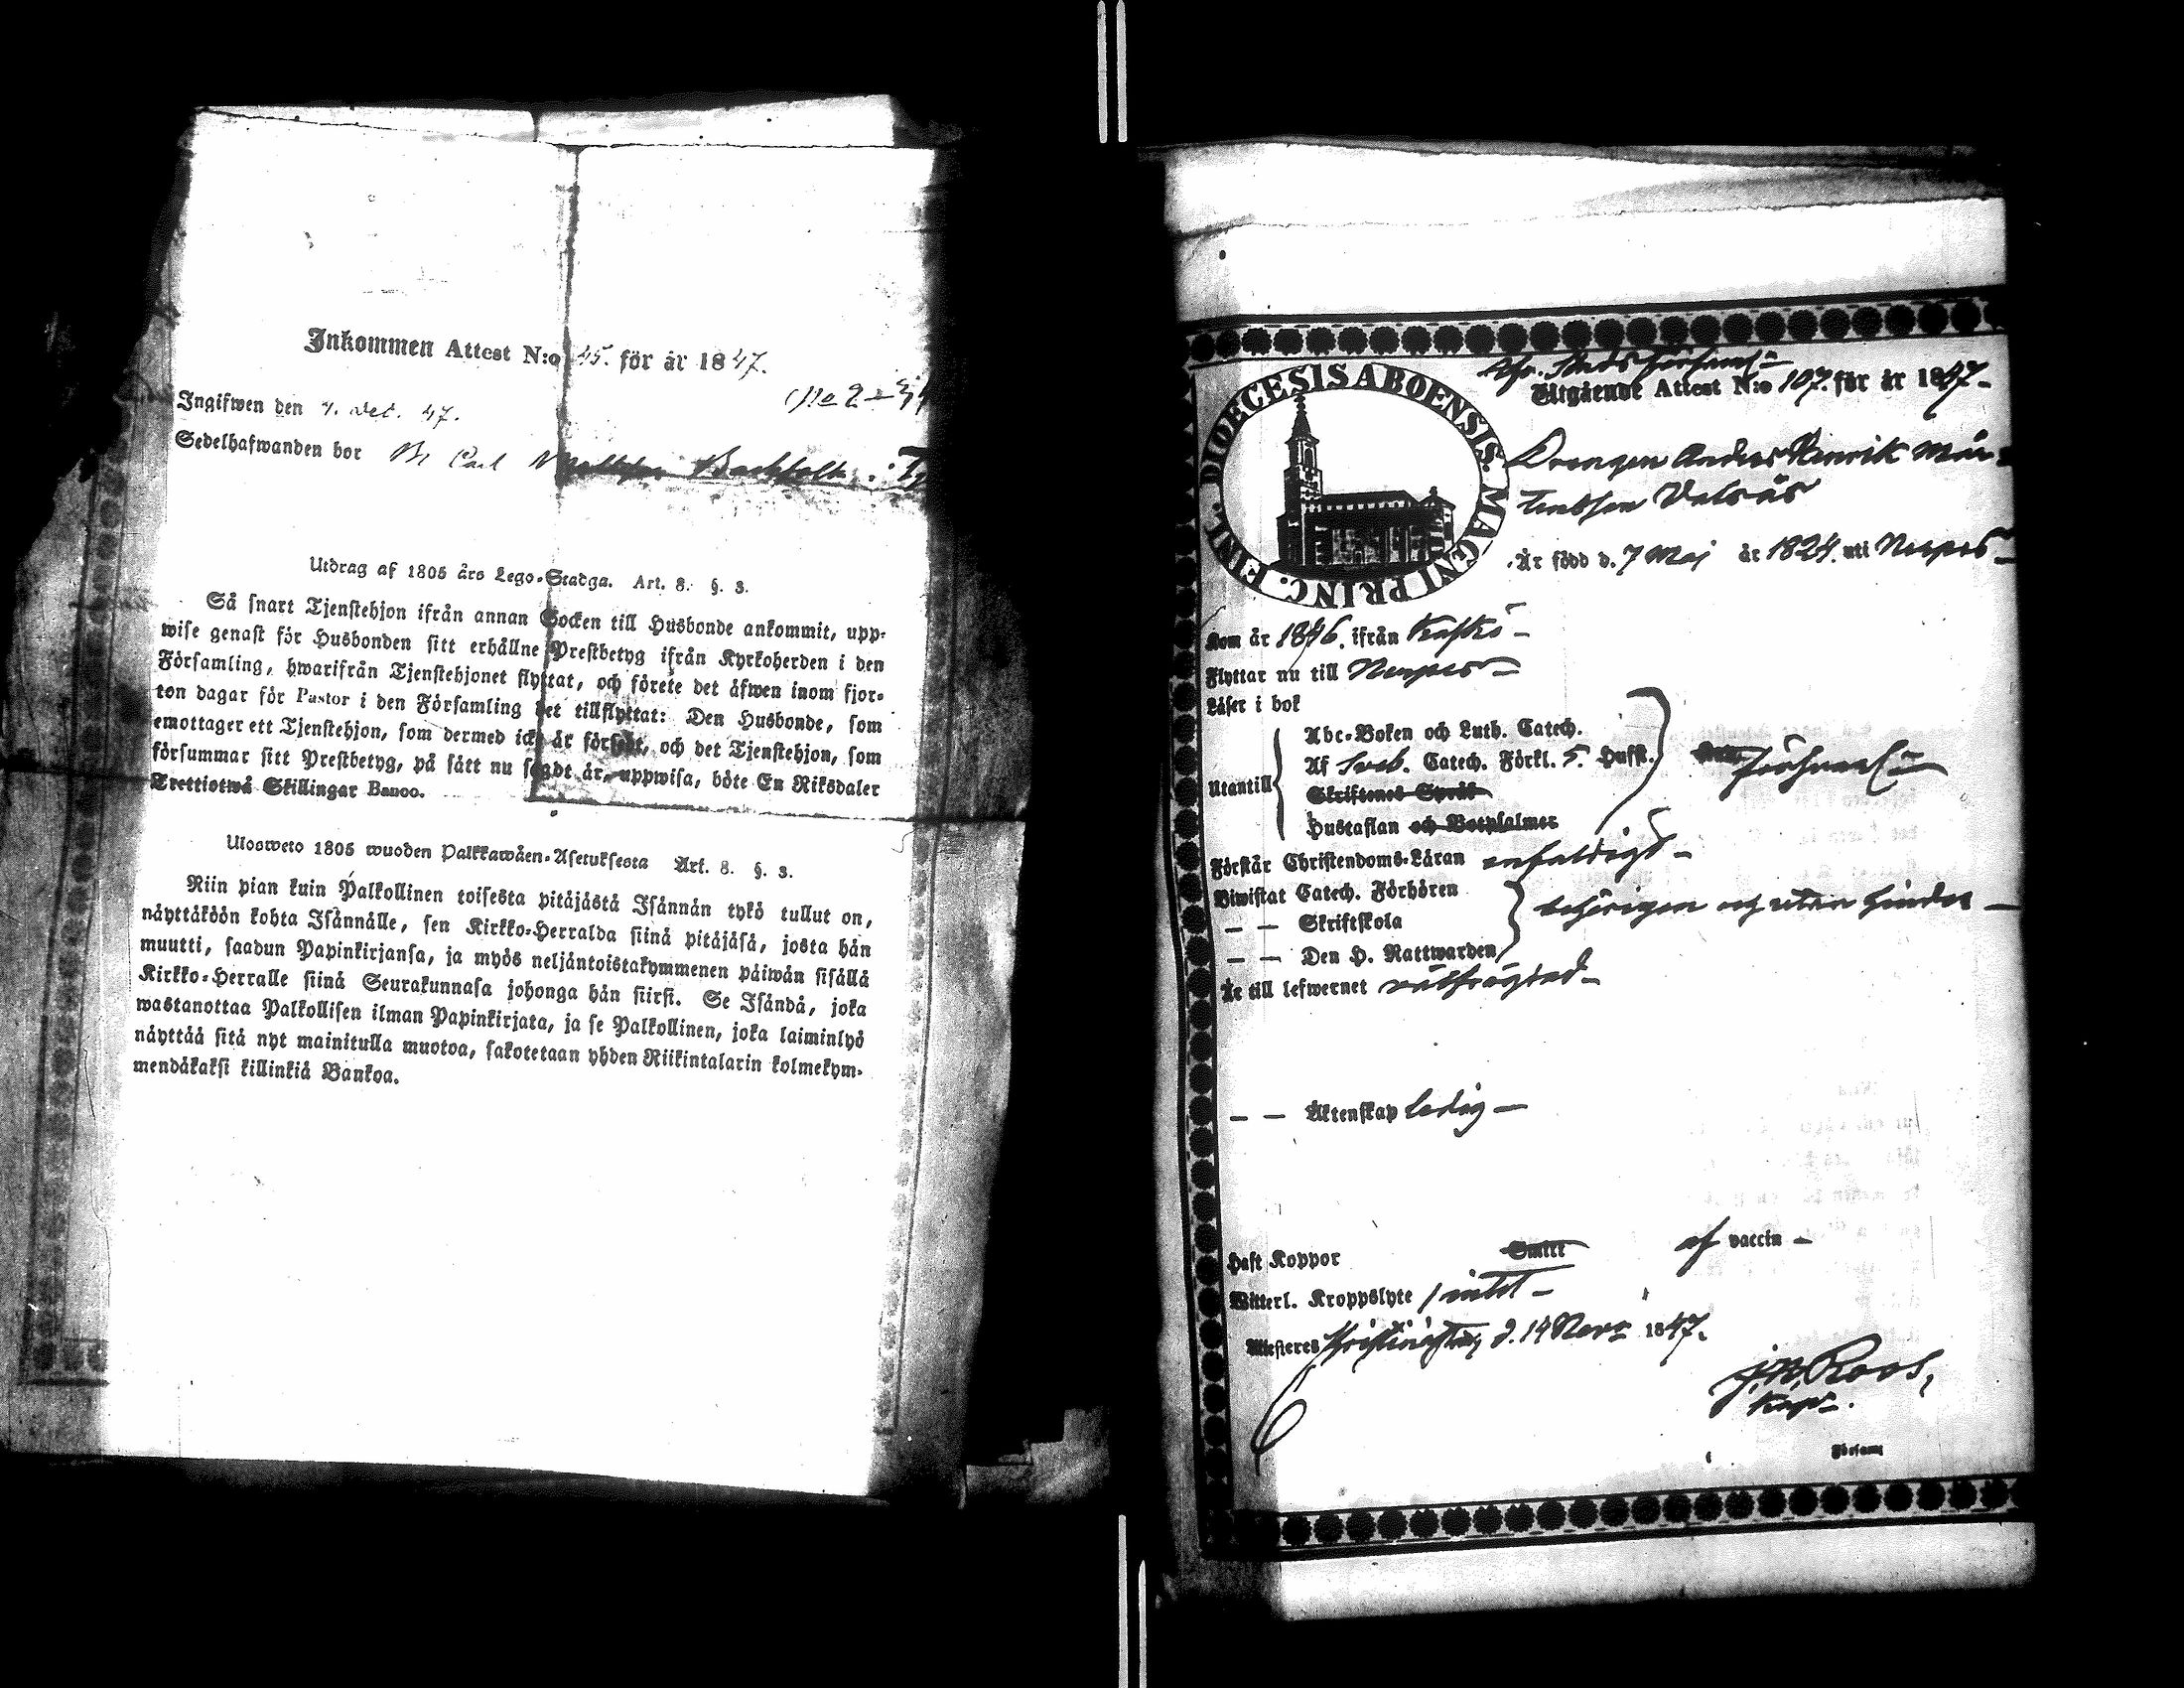 Inkommen Attest N:o 45. för år 1847.
Ingifwen den 4. Dec. 47.
Sedelhafwanden bor Carl
Utdrag af 1805 års Lego-Stadga. Art. 8. §. 3.
Så snart Tjenstehjon ifrån annan Socken till Husbonde ankommit, upp-
wise genast för Husbonden sitt erhållne Prestbetyg ifrån Kyrkoherden i den
Församling, hwarifrån Tjenstehjonet flyttat, och förete det äfwen inom fjor-
ton dagar för Pastor i den Församling det tillflyttat: Den Husbonde, som
emottager ett Tjenstehjon, som dermed icke är försedt, och det Tjenstehjon, som
försummar sitt Prestbetyg, på sätt nu sagdt är, uppwisa, böte En Riksdaler
Trettiotwå Skillingar Banco.
Ulosweto 1805 wuoden Palkkawäen-Asetuksesta Art. 8. §. 3.
Niin pian kuin Palkollinen toisesta pitäjästä Isännän tykö tullut on,
näyttäköön kohta Isännälle, sen Kirkko-Herralda siinä pitäjäsä, josta hän
muutti, saadun Papinkirjansa, ja myös neljäntoistakymmenen päiwän sisällä
Kirkko-Herralle siinä Seurakunnasa johonga hän siirsi. Se Isändä, joka
wastanottaa Palkollisen ilman Papinkirjata, ja se Palkollinen, joka laiminlyö
näyttää sitä nyt mainitulla muotoa, sakotetaan yhden Riikintalarin kolmekym-
mendäkaksi killinkiä Bankoa.
DIOECESIS ABOENSIS. MAGNI PRINC. FINL.
Utgående Attest N:o 107. för år 1847.
Drengen Anders Henrik Mår-
tensson Valsäs
Är född d. 7 Maj år 1824. uti Nerpes
Kom år 1846. ifrån Kaskö
Flyttar nu till Nerpes
Läser i bok
Abc-Boken och Luth. Catech.
Utantill Af Sveb. Catech. Förkl. 5. Hufst.
Skriftenes Språk
Hustaflan och Botpsalmer
Förstår Christendoms-Läran enfaldigt
Biwistat Catech. Förhören
— — Skriftskola behörigen och utan hinder
— — Den H. Nattwarden
Är till lefwernet välfrägdad
— — Äktenskap ledig
Haft Koppor Smitt af vaccin
Witterl. Kroppslyte intet
Attesteras Christinestad, d. 14 Novr 1847.
J. W. Roos,
Kapl.
Församl